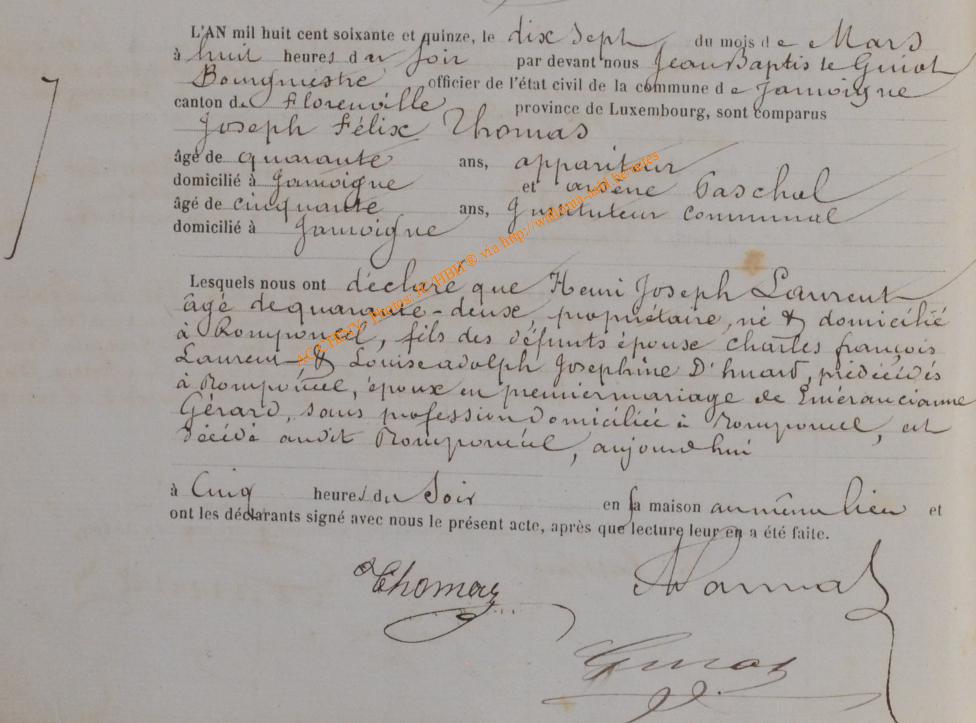 7
L'AN mil huit cent soixante et quinze, le dix Sept du mois de Mars
à huit heures du Soir par devant nous Jean Baptiste Guiot
Bourgmestre officier de l'état civil de la commune de Jamoigne
canton de Florenville province de Luxembourg, sont comparus
Joseph Félix Thomas
âgé de quarante ans, appariteur
domicilié à Jamoigne et arsène Paschal
âgé de cinquante ans, Instituteur communal
domicilié à Jamoigne
Lesquels nous ont déclaré que Henri Joseph Laurent
âgé de quarante-deux, propriétaire, né & domicilié
à Romponcel, fils des défunts épouse Charles françois
Laurent & Louise adolph Josephine D'huart, prédécédés
à Romponcel, époux en premier mariage de Emérancianne
Gérard, sans profession domiciliée à Romponcel, est
décédé audit Romponcel, aujourdhui
à Cinq heures du Soir en sa maison au même lieu et
ont les déclarants signé avec nous le présent acte, après que lecture leur en a été faite.
Thomas
Guiot